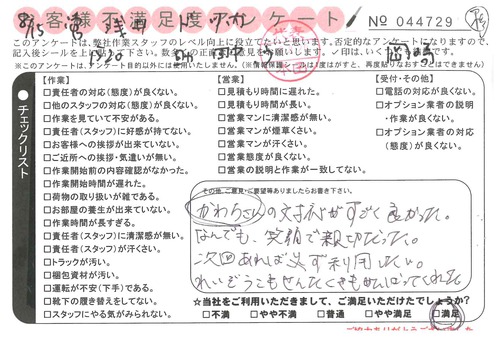 お客様不満足度アンケート
No 044729
8/15
このアンケートは、弊社作業スタッフのレベル向上に役立てたいと思います。否定的なアンケートになりますので、
記入後シールを上に貼って下さい。数多くの正直な御意見をお願いします。チェックがなければ、いたって健全です。
※このアンケートは、アンケート目的以外には使用いたしません。
チェックリスト
【作業】
□責任者の対応(態度)が良くない。
□他のスタッフの対応(態度)が良くない。
□作業を見ていて不安がある。
□責任者(スタッフ)に好感が持てない。
□お客様への挨拶が出来ていない。
□ご近所への挨拶・気遣いが無い。
□作業開始前の内容確認がなかった。
□作業開始時間が遅れた。
□荷物の取り扱いが雑である。
□お部屋の養生が出来ていない。
□作業時間が長すぎる。
□責任者(スタッフ)に清潔感が無い。
□責任者(スタッフ)が汗くさい。
□トラックが汚い。
□梱包資材が汚い。
□運転が不安(下手)である。
□靴下の履き替えをしてない。
□スタッフにやる気がみられない。
【営業】
□見積もり時間に遅れた。
□見積もり時間が長い。
□営業マンに清潔感が無い。
□営業マンが煙草くさい。
□営業マンが汗くさい。
□営業態度が良くない。
□営業の説明と作業が一致してない。
【受付・その他】
□電話の対応が良くない。
□オプション業者の説明
・作業が良くない。
□オプション業者の対応
(態度)が良くない。
その他、ご意見・ご要望等ありましたらお書き下さい。
かわらさんの対応がすごく良かった。
なんでも、笑顔で親切だった。
次回あれば必ず利用したい。
れいぞうこもせんたくきもがんばってくれた
☆当社をご利用いただきまして、ご満足いただけたでしょうか?
□不満 □やや不満 □普通 □やや満足 □満足